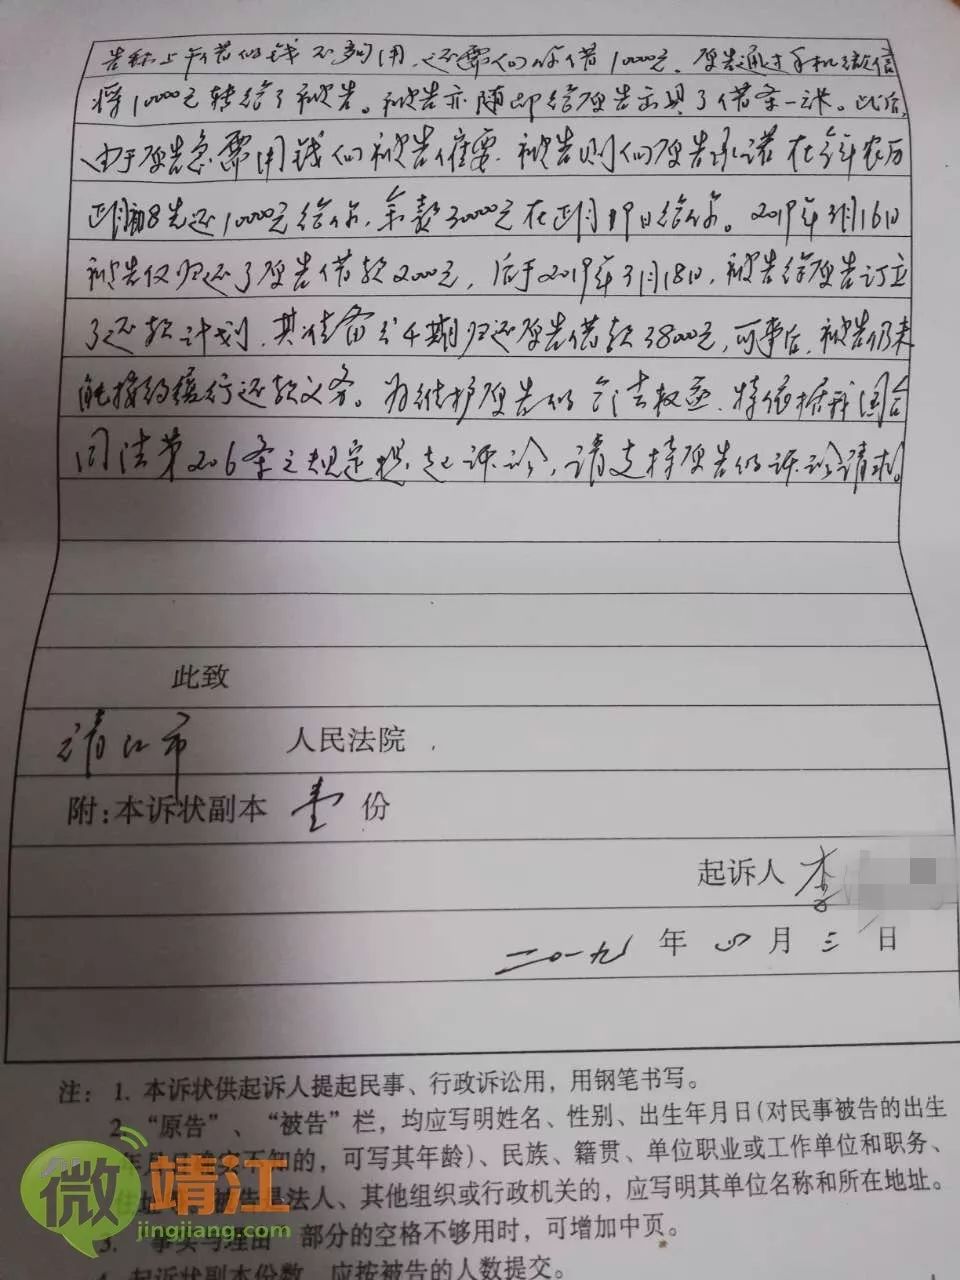 告称上午借的钱不够用，还需向你借10000元，原告通过手机微信
将10000元转给了被告。被告亦随即给原告出具了借条一张。此后，
由于原告急需用钱向被告催要，被告则向原告承诺在今年农历
正月初8先还10000元给你，余款30000元在正月19日给你。2019年3月16日
被告仅归还了原告借款2000元，后于2019年3月18日，被告给原告订立
了还款计划，其准备分4期归还原告借款38000元，可事后，被告仍未
能按约履行还款义务。为维护原告的合法权益，特依据我国合
同法第206条之规定提起诉讼，请支持原告的诉讼请求。
此致
靖江市 人民法院
附：本诉状副本 壹 份
起诉人 李
二〇一九 年 四 月 三 日
注：1. 本诉状供起诉人提起民事、行政诉讼用，用钢笔书写。
2. “原告”、“被告”栏，均应写明姓名、性别、出生年月日(对民事被告的出生
不知的，可写其年龄)、民族、籍贯、单位职业或工作单位和职务、
住地 被告是法人、其他组织或行政机关的，应写明其单位名称和所在地址。
3. “事实与理由”部分的空格不够用时，可增加中页。
4. 起诉状副本份数，应按被告的人数提交。
微靖江
jingjiang.com